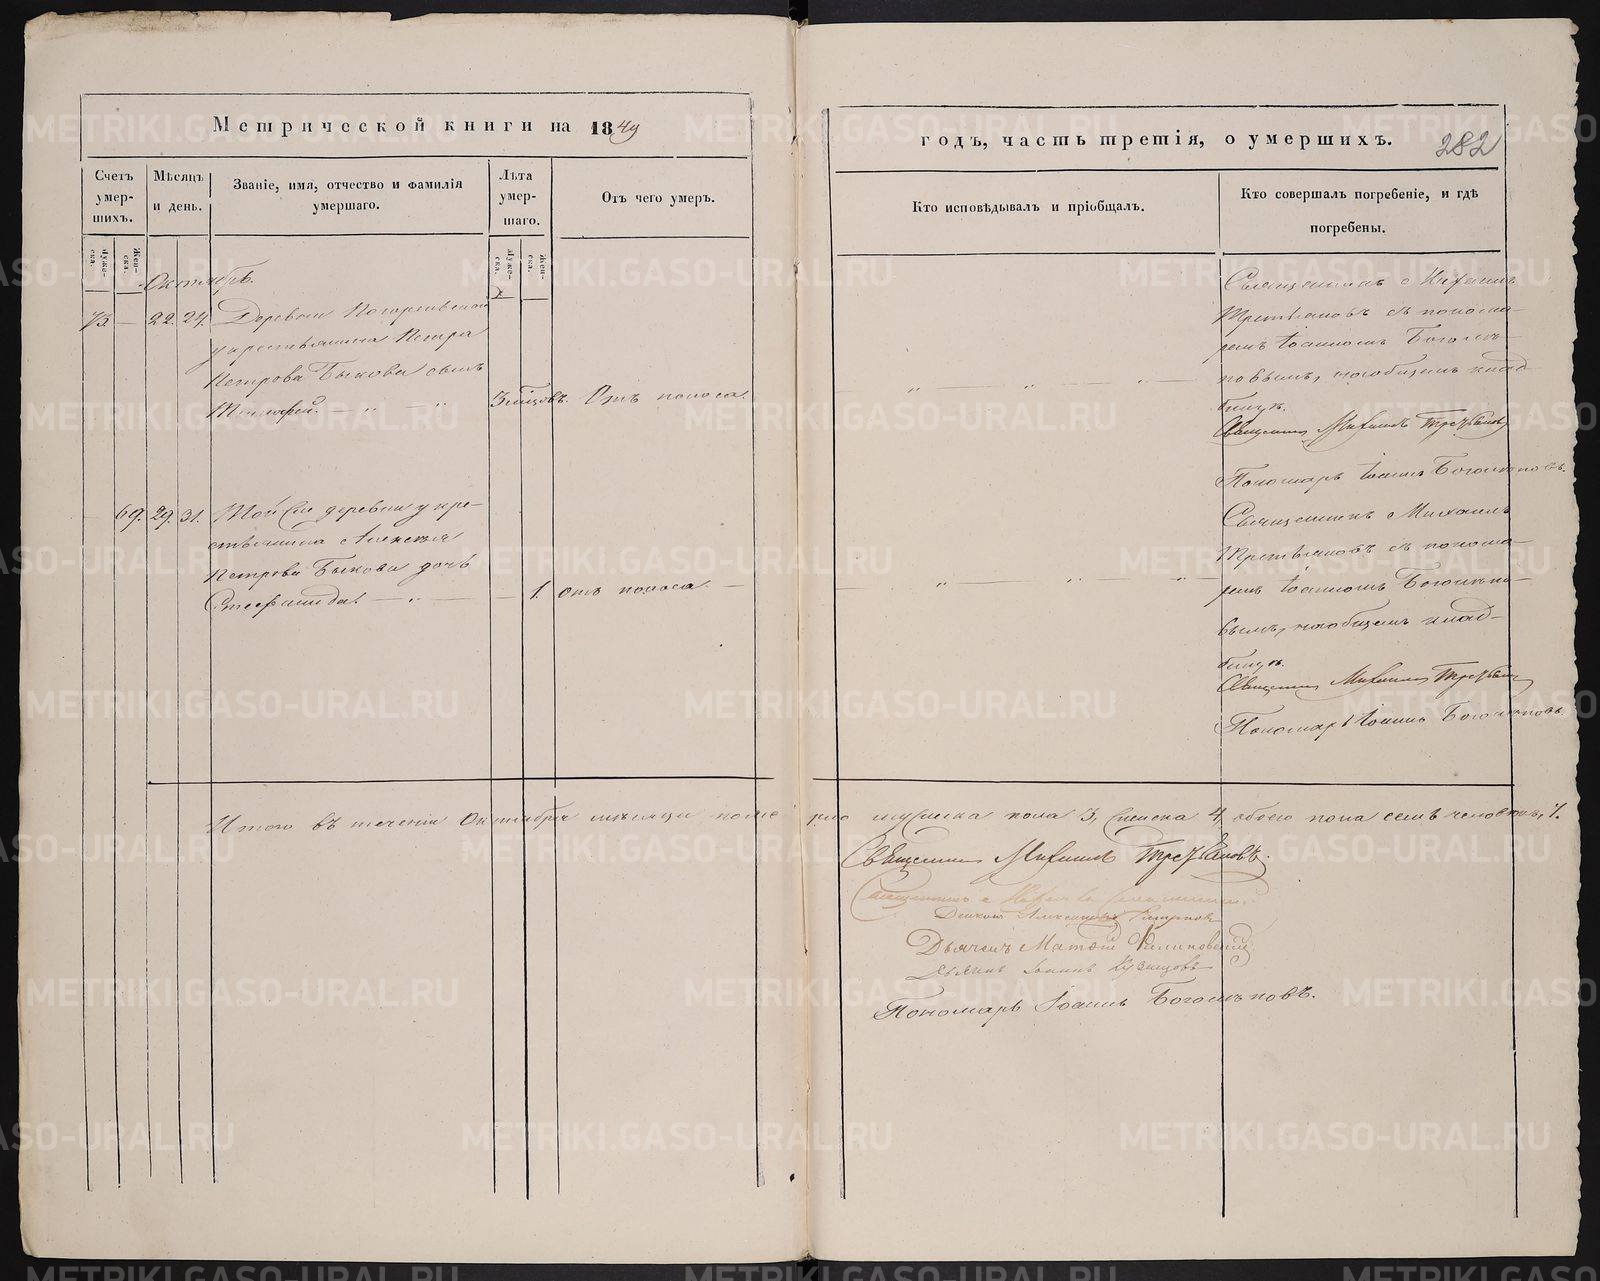 Метрической книги на 1849
годъ, часть третія, о умершихъ.
282
Счетъ умер-
шихъ.
Мѣсяцъ
и день.
Званіе, имя, отчество и фамилія
умершаго.
Лѣта
умер-
шаго.
Отъ чего умеръ.
Кто исповѣдывалъ и пріобщалъ.
Кто совершалъ погребеніе, и гдѣ
погребены.
Муже-
ска.
Жен-
ска.
Муже-
ска.
Жен-
ска.
Октябрь.
73. — 22. 24. Деревни
у крестьянина Петра
Петрова Быкова сынъ
От поноса.
Священникъ Михаилъ
Третьяковъ съ понома-
ремъ Іоанномъ Боголѣ-
повымъ, на общемъ клад-
бищѣ.
Священникъ Михаилъ Третьяковъ
Пономарь Іоаннъ Боголѣповъ.
69. 29. 31. Той же деревни у кре-
стьянина Алексея
Петрова Быкова дочь
Стефанида. 1. отъ поноса.
Священникъ Михаилъ
Третьяковъ съ понома-
ремъ Іоанномъ Боголѣпо-
вымъ, на общемъ клад-
бищѣ.
Священникъ Михаилъ Третьяковъ
Пономарь Іоаннъ Боголѣповъ.
Итого въ теченіи Октября мѣсяца померло мужеска пола 3, женска 4, обоего пола семь человѣкъ, 7.
Священникъ Михаилъ Третьяковъ.
Священникъ
Діаконъ Александръ
Дьячекъ Матѳій
Іоаннъ Кузнецовъ
Пономарь Іоаннъ Боголѣповъ.
METRIKI.GASO-URAL.RU